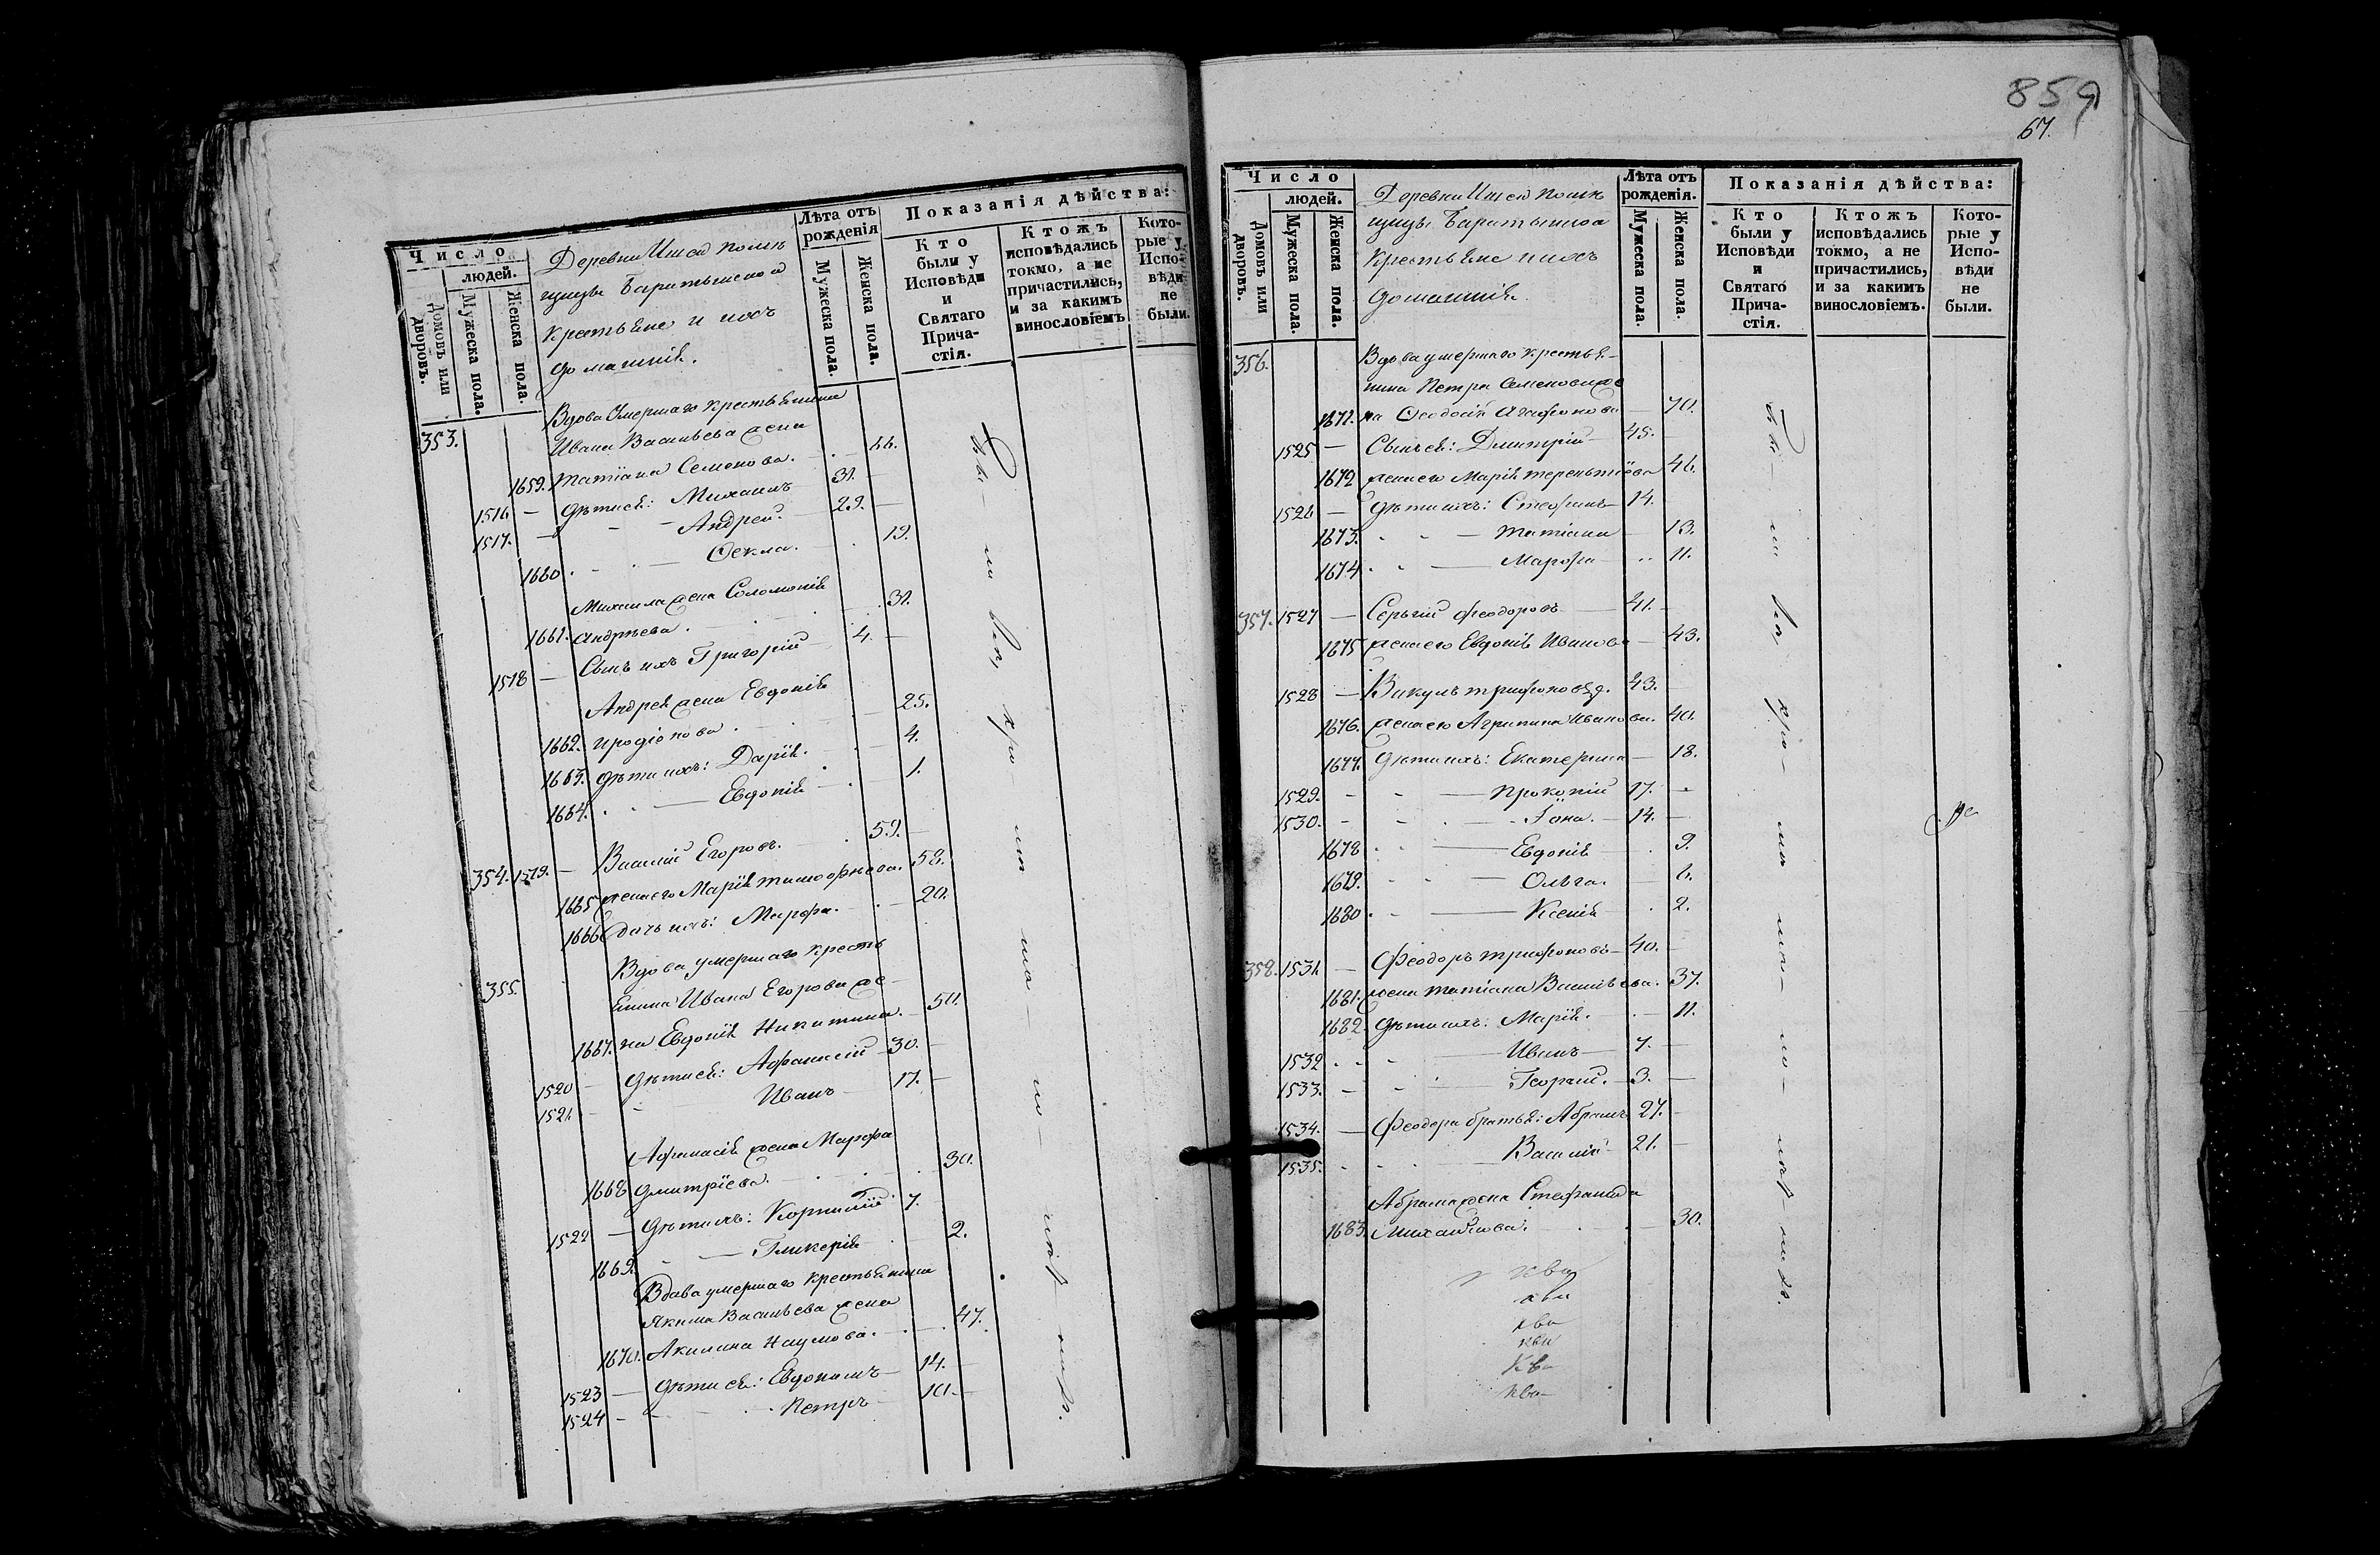 Число
людей.
Домовъ или дворовъ.
Мужеска пола.
Женска пола.
Деревни Ишей помѣ
щицы Баратынской
Крестьяне и ихъ
домашнiе.
Лѣта отъ рожденiя
Мужеска пола.
Женска пола.
Показанiя дѣйства:
Кто были у Исповѣди и Святаго Прича-стiя.
Ктожъ исповѣдались токмо, а не причастились, и за какимъ винословiемъ
Кото-рые у Испо-вѣди не были.
353. Вдова Умершаго крестьянина
Ивана Васильева жена
1659. Татiана Семенова. 66.
1516 — Дѣти ея: Михаилъ 31.
1517. — Андрей. 29.
1660 Ѳекла. 19.
Михаила жена Соломонiя
1661. Андрѣева. 31.
1518 — Сынъ ихъ Григорiй 4.
Андрея жена Евдокiя
1662. Иродiонова. 25.
1663. Дѣти ихъ: Дарiя. 4.
1664. Евдокiя 1.
354. 1519. — Василiй Егоровъ. 59.
1665 жена его Марiя Тимофѣева. 58.
1666 дочь ихъ: Марфа. 20.
355. Вдова умершаго кресть
янина Ивана Егорова же-
1667. на Евдокiя Никитина. 50.
1520 — Дѣти ея: Афанасiй 30.
1521. — Иванъ 17.
Афанасiя жена Марфа
1668 Дмитрiева. 30.
1522 — Дѣти ихъ: Корнилiй 7.
1669. Гликерiя 2.
Вдова умершаго крестьянина
Якима Васильева жена
1670. Акилина Наумова. 47.
1523 — Дѣти ея: Евдокимъ 14.
1524 — Петръ 10.
859
67.
Число
людей.
Домовъ или дворовъ.
Мужеска пола.
Женска пола.
Деревни Ишей помѣ
щицы Баратынской
Крестьяне и ихъ
домашнiе.
Лѣта отъ рожденiя.
Мужеска пола.
Женска пола.
Показанiя дѣйства:
Кто были у Исповѣди и Святаго Прича-стiя.
Ктожъ исповѣдались токмо, а не причастились, и за какимъ винословiемъ.
Кото-рые у Испо-вѣди не были.
356. Вдова умершаго крестья-
нина Петра Семенова же
1671. на Ѳеодосiя Агафонова 70.
1525 — Сынъ ея: Дмитрiй 45.
1672 жена его Марiя Терентiева 46.
1526 — Дѣти ихъ: Стефанъ 14.
1673. Татiана 13.
1674 Марфа 11.
357. 1527 — Сергiй Феодоровъ 41.
1675 жена его Евдокiя Иванова 43.
1528 — Викулъ Трифоновъ. 43.
1676. жена его Агрипина Иванова. 40.
1677. Дѣти ихъ: Екатерина 18.
1529. Прокопiй 17.
1530. Iона. 14.
1678 Евдокiя 9.
1679. Ольга. 6.
1680 Ксенiя 2.
358. 1531. — Феодоръ Трифоновъ 40.
1681. жена Татiана Васильева. 37.
1682. Дѣти ихъ: Марiя. 11.
1532 Иванъ 7.
1533. Георгiй. 3.
1534. — Феодора братья: Абрамъ 27.
1535. Василiй 21.
Абрама жена Стефанида
1683. Михайлова. 30.
ква
ква
ква
ква
ква
ква